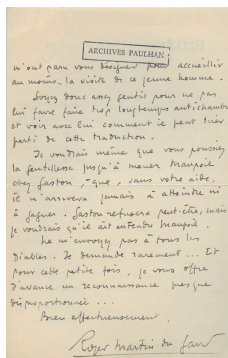 ARCHIVES PAULHAN
m'ont paru vous désigner pour accueillir
au moins la visite de ce jeune homme.
Soyez donc assez gentil pour ne pas
lui faire faire trop longtemps antichambre
et voir avec lui comment il peut tirer
parti de cette traduction.
Je voudrais même que vous poussiez
la gentillesse jusqu'à mener
chez Gaston, - que, sans votre aide,
il n'arrivera jamais à atteindre ni
à gagner. Gaston refusera peut-être, mais
je voudrais qu'il ait entendu
Ne m'envoyez pas à tous les
diables. Je demande rarement ... Et
pour cette petite fois, je vous offre
d'avance une reconnaissance presque
disproportionnée ...
Bien affectueusement,
Roger Martin du Gard